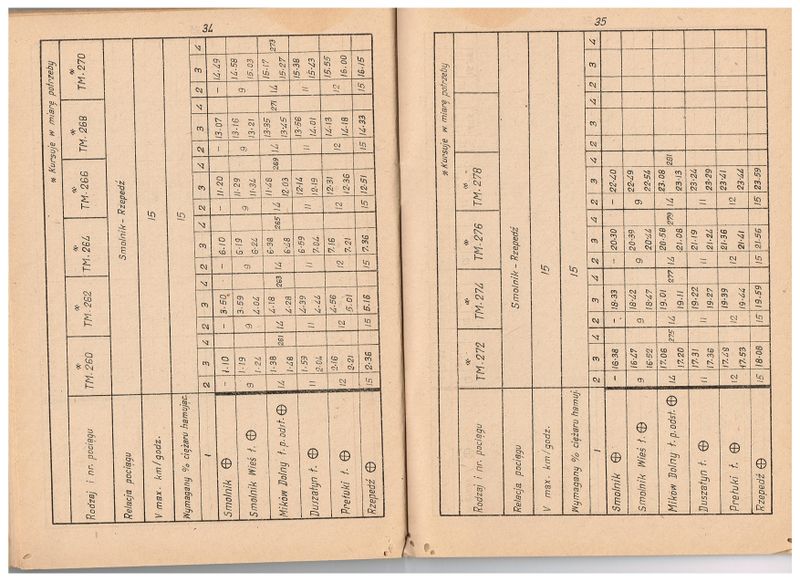 34
* Kursuje w miarę potrzeby
Rodzaj i nr. pociągu * TM.260 * TM.262 * TM.264 * TM.266 * TM.268 * TM.270
Relacja pociągu Smolnik - Rzepedź
V max. km/godz. 15
Wymagany % ciężaru hamując. 15
1 2 3 4 2 3 4 2 3 4 2 3 4 2 3 4 2 3 4
Smolnik ⊕ – 1.10 – 3.50 – 6.10 – 11.20 – 13.07 – 14.49
1.19 3.59 6.19 11.29 13.16 14.58
Smolnik Wieś ł. ⊕ 9 1.24 9 4.04 9 6.24 9 11.34 9 13.21 9 15.03
1.38 261 4.18 263 6.38 265 11.48 269 13.35 271 15.17 273
Mików Dolny ł. p. odst. ⊕ 14 1.48 14 4.28 14 6.48 14 12.03 14 13.45 14 15.27
1.59 4.39 6.59 12.14 13.56 15.38
Duszatyn ł. ⊕ 11 2.04 11 4.44 11 7.04 11 12.19 11 14.01 11 15.43
2.16 4.56 7.16 12.31 14.13 15.55
Prełuki ł. ⊕ 12 2.21 12 5.01 12 7.21 12 12.36 12 14.18 12 16.00
Rzepedź ⊕ 15 2.36 15 5.16 15 7.36 15 12.51 15 14.33 15 16.15
35
* Kursuje w miarę potrzeby
Rodzaj i nr. pociągu * TM.272 * TM.274 * TM.276 * TM.278
Relacja pociągu Smolnik - Rzepedź
V max. km/godz. 15
Wymagany % ciężaru hamuj. 15
1 2 3 4 2 3 4 2 3 4 2 3 4 2 3 4 2 3 4
Smolnik ⊕ – 16.38 – 18.33 – 20.30 – 22.40
16.47 18.42 20.39 22.49
Smolnik Wieś ł. ⊕ 9 16.52 9 18.47 9 20.44 9 22.54
17.06 275 19.01 277 20.58 279 23.08 281
Mików Dolny ł. p. odst. ⊕ 14 17.20 14 19.11 14 21.08 14 23.13
17.31 19.22 21.19 23.24
Duszatyn ł. ⊕ 11 17.36 11 19.27 11 21.24 11 23.29
17.48 19.39 21.36 23.41
Prełuki ł. ⊕ 12 17.53 12 19.44 12 21.41 12 23.44
Rzepedź ⊕ 15 18.08 15 19.59 15 21.56 15 23.59